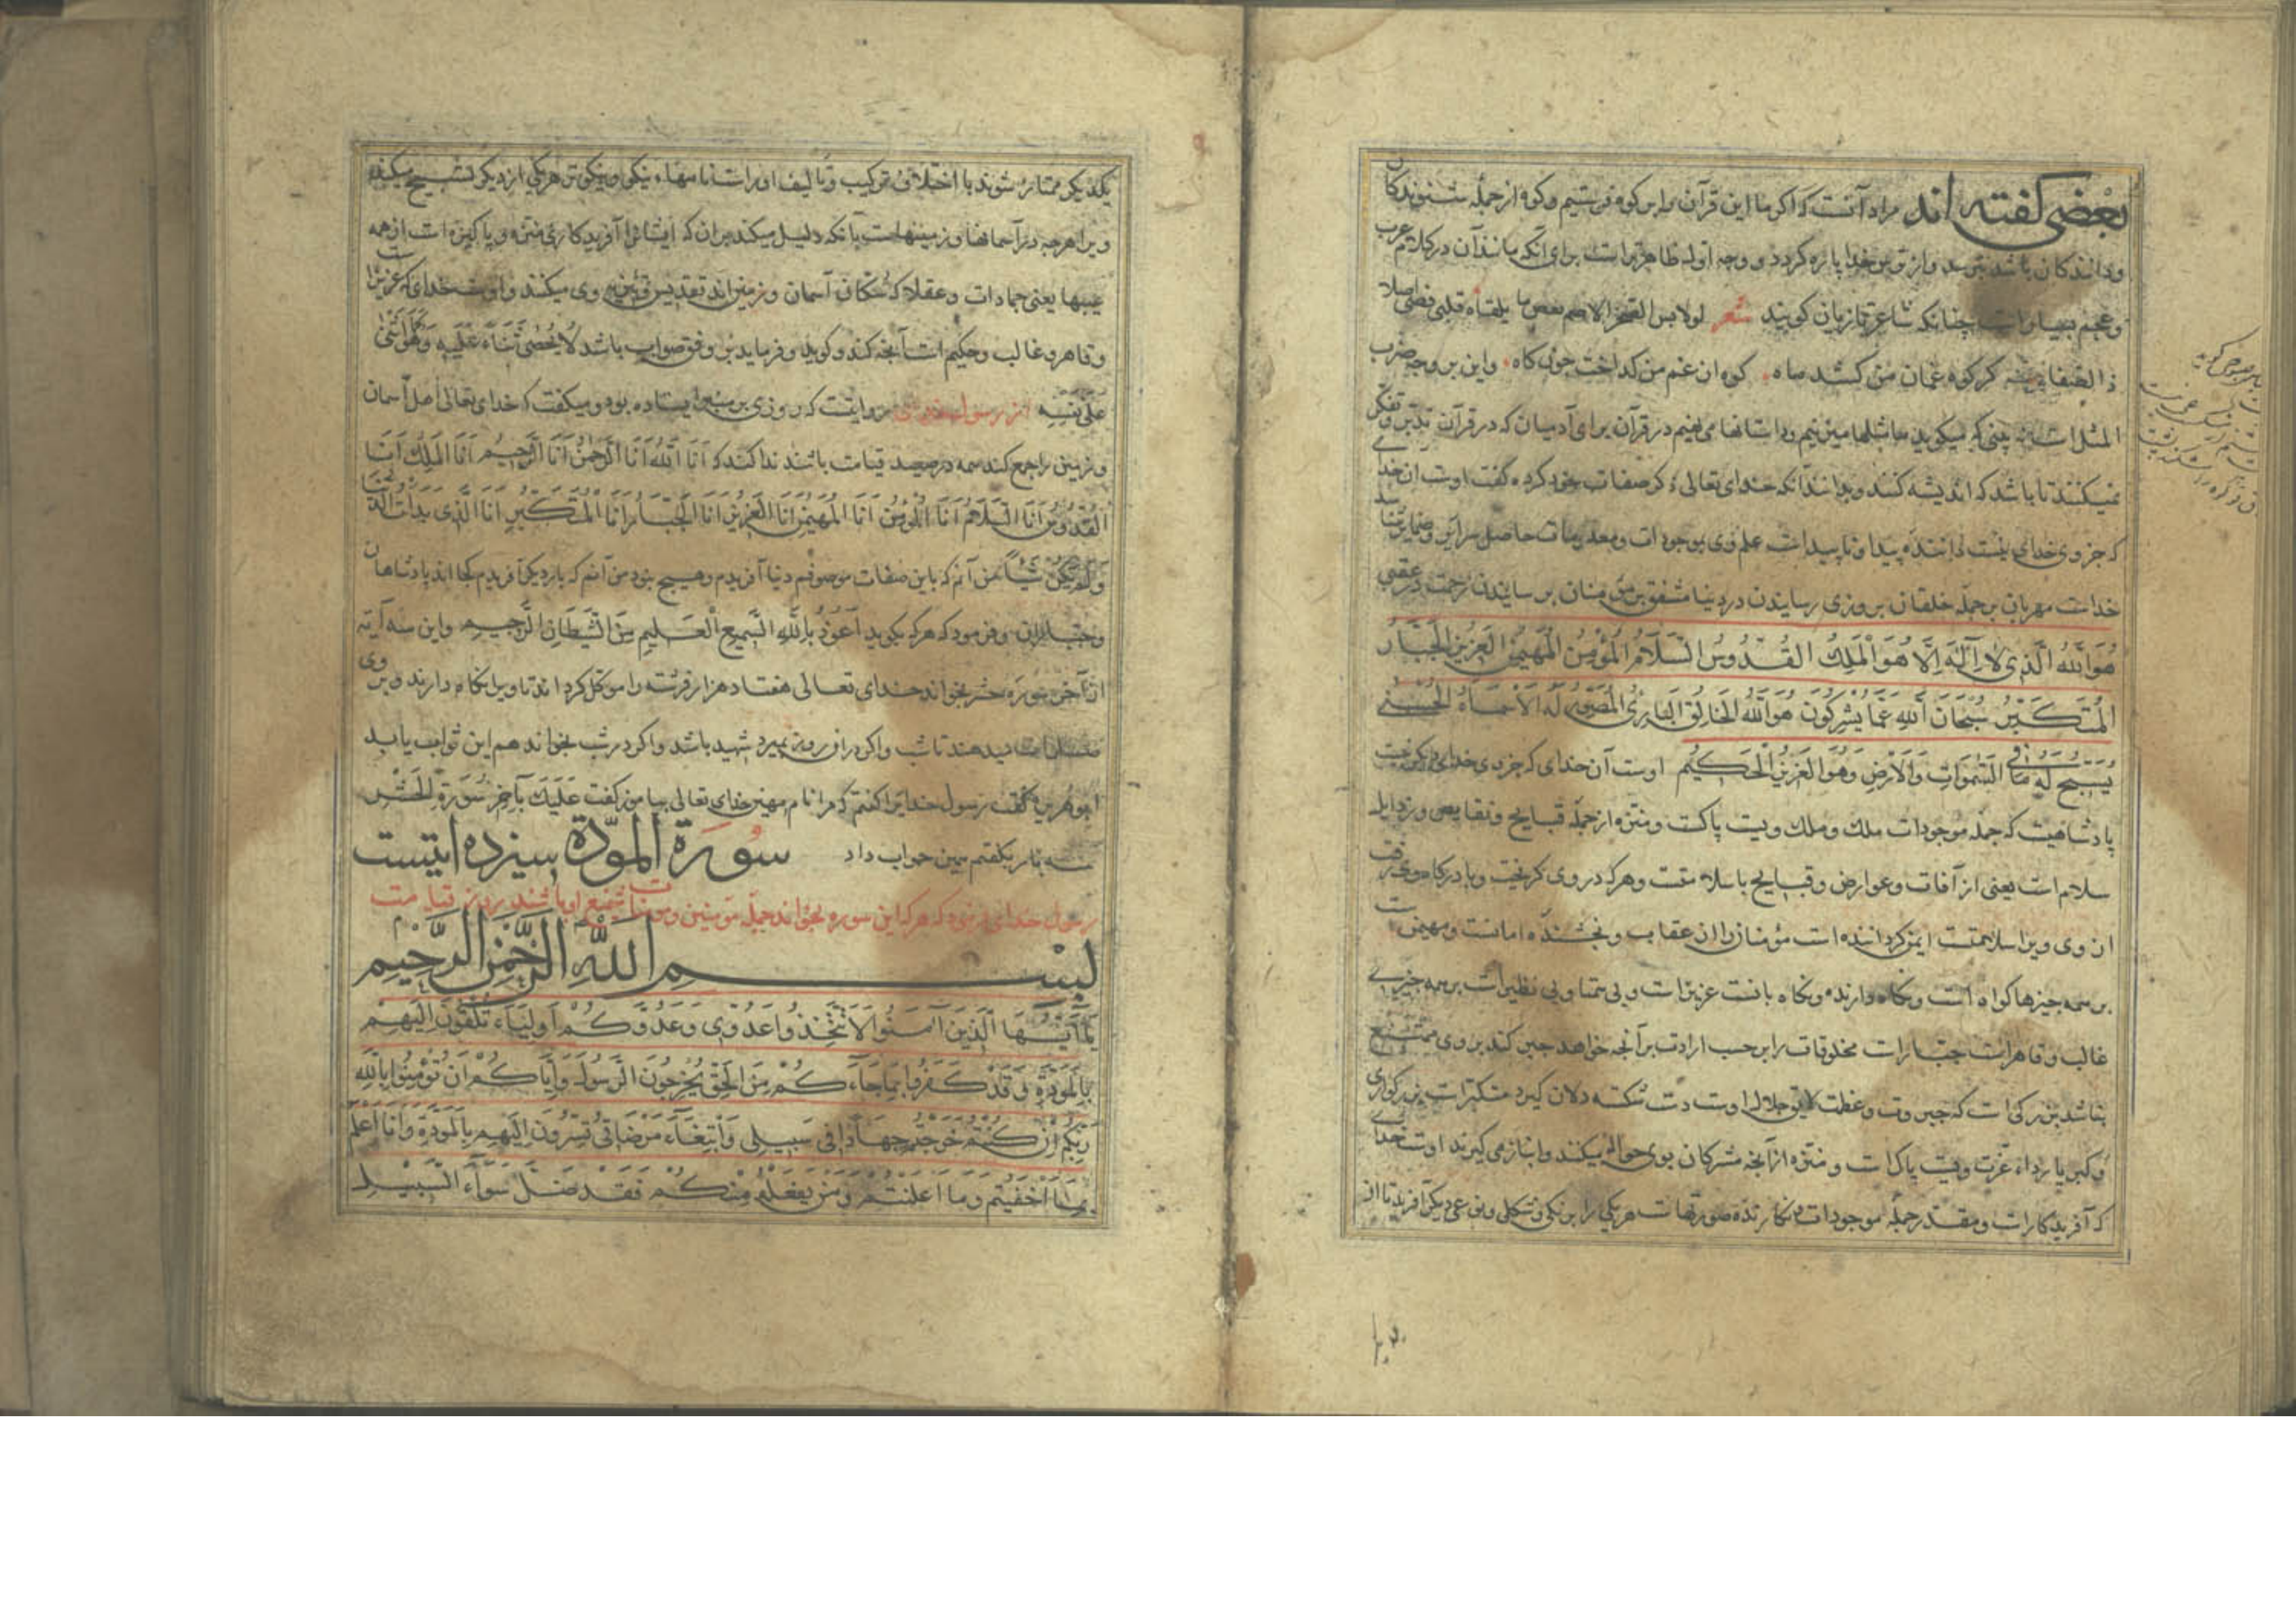 بعضی کفته اند مراد آنست که اکر ما این قرآن را بر کوه فرستیم و کوه از جمله شنوندکان
ودانندکان باشد بترسد واز ترس خدا پاره کردد و وجه اول ظاهرتراست برای آنکه مانند آن در کلام عرب
وعجم بسیاراست چنانکه شاعر تازیان کویند شعر
کر کوه غمان من کشد ماه کوه ان غم من کداخت چون کاه واین بر وجه ضرب
المثل است یعنی که میکوید ما مثلها میزنیم وداستانها می نهیم در قرآن برای آدمیان که در قرآن تدبر وتفکر
نمیکنند تا باشد که اندیشه کنند وبدانند آنکه خدای تعالی ذکر صفات خود کرده کفت اوست ان خدای
که جز وی خدای نیست داننده پیدا وناپیداست علم وی بموجودات ومعدومات حاصل سرایر وضمایر
خداست مهربان بر جمله خلقان بروزی رسانیدن در دنیا مشفق بر مومنان برسانیدن رحمت در عقبی
هُوَ اللَّهُ الَّذِی لَا اِلَهَ اِلَّا هُوَ الْمَلِکُ الْقُدُّوسُ السَّلَامُ الْمُؤْمِنُ الْمُهَیْمِنُ الْعَزِیزُ الْجَبَّارُ
الْمُتَکَبِّرُ سُبْحَانَ اللَّهِ عَمَّا یُشْرِکُونَ هُوَ اللَّهُ الْخَالِقُ الْبَارِئُ الْمُصَوِّرُ لَهُ الْاَسْمَاءُ الْحُسْنَی
یُسَبِّحُ لَهُ مَا فِی السَّمَوَاتِ وَالْاَرْضِ وَهُوَ الْعَزِیزُ الْحَکِیمُ اوست آن خدای که جز وی خدای دیکر نیست
پادشاهیست که جمله موجودات ملک وملک ویست پاکست ومنزه از جمله قبایح ونقایص ورذایل
سلام است یعنی از آفات وعوارض وقبایح باسلامتست وهر که در وی کریخت وبا درکاه وی
ان وی ویرا سلامتست ایمن کرداننده است مؤمنان را از عقاب وبخشنده امانست ومهیمن است
بر همه چیزها کواه است ونکاه دارنده ونکاه بانست عزیز است وبی همتا وبی نظیر است بر همه چیزی
غالب وقاهر است جبارات مخلوقات را بر حسب ارادت بر آنچه خواهد جبر کند بر وی ممتنع
نباشد بزرکی است که جبروت وعظمت لایق جلال اوست دست شکسته دلان کیرد متکبر است بزرکواری
وکبریا رداء عزت ویست پاک است ومنزه از آنچه مشرکان بوی حواله میکنند وانباز می کیرند اوست خدای
که آفریدکار است ومقدر جمله موجودات نکارنده صورتهاست هر یکی را برنکی وشکلی ونوعی دیکر آفرید تا از
یکدیکر ممتاز شوند با اختلاف ترکیب وتالیف اوراست نامهاء نیکو ونیکوتر هر یکی از دیکر تسبیح میکند
ویرا هر چه در آسمانها وزمینهاست بآنکه دلیل میکند بران که ایشانرا آفریدکاری منزه وپاکیزه است از همه
عیبها یعنی جمادات وعقلا که سکان آسمان وزمین اند تقدیس وتنزیه وی میکنند واوست خدای که عزیز است
وقاهر وغالب وحکیم است آنچه کند وکوید وفرماید بر وفق صواب باشد لَا یُحْصَی ثَنَاءٌ عَلَیْهِ وَهُوَ کَمَا اَثْنَی
عَلَی نَفْسِهِ از رسول خدای روایتست که روزی بر منبر ایستاده بود ومیکفت که خدای تعالی اهل آسمان
وزمین را جمع کند همه در صعید قیامت باشند ندا کند که اَنَا اللَّهُ اَنَا الرَّحْمَنُ اَنَا الرَّحِیمُ اَنَا الْمَلِکُ اَنَا
الْقُدُّوسُ اَنَا السَّلَامُ اَنَا الْمُؤْمِنُ اَنَا الْمُهَیْمِنُ اَنَا الْعَزِیزُ اَنَا الْجَبَّارُ اَنَا الْمُتَکَبِّرُ اَنَا الَّذِی بَدَأْتُ الدُّنْیَا
وَلَمْ تَکُنْ شَیْئًا من آنم که باین صفات موصوفم دنیا آفریدم وهیچ نبود من آنم که بار دیکر آفریدم کجا اند پادشاهان
وجباران وفرمود که هر که بکوید اَعُوذُ بِاللَّهِ السَّمِیعِ الْعَلِیمِ مِنَ الشَّیْطَانِ الرَّجِیمِ واین سه آیه
از آخر سوره حشر بخواند خدای تعالی هفتاد هزار فرشته را موکل کرداند تا ویرا نکاه دارند وبر وی
صلوات میدهند تا شب واکر دران روز بمیرد شهید باشد واکر در شب بخواند هم این ثواب یابد
ابو هریره کفت رسول خدایرا کفتم که مرا نام مهین خدای تعالی بیاموز کفت عَلَیْکَ بِآخِرِ سُورَةِ الْحَشْرِ
سه بار بکفتم همین جواب داد سورة المودّة سیزده ایتست
رسول خدای فرمود که هر که این سوره بخواند جمله مومنین ومومنات شفیع او باشند روز قیامت
بسم الله الرحمن الرحیم
یَا اَیُّهَا الَّذِینَ آمَنُوا لَا تَتَّخِذُوا عَدُوِّی وَعَدُوَّکُمْ اَوْلِیَاءَ تُلْقُونَ اِلَیْهِمْ
بِالْمَوَدَّةِ وَقَدْ کَفَرُوا بِمَا جَاءَکُمْ مِنَ الْحَقِّ یُخْرِجُونَ الرَّسُولَ وَاِیَّاکُمْ اَنْ تُؤْمِنُوا بِاللَّهِ
رَبِّکُمْ اِنْ کُنْتُمْ خَرَجْتُمْ جِهَادًا فِی سَبِیلِی وَابْتِغَاءَ مَرْضَاتِی تُسِرُّونَ اِلَیْهِمْ بِالْمَوَدَّةِ وَاَنَا اَعْلَمُ
بِمَا اَخْفَیْتُمْ وَمَا اَعْلَنْتُمْ وَمَنْ یَفْعَلْهُ مِنْکُمْ فَقَدْ ضَلَّ سَوَاءَ السَّبِیلِ